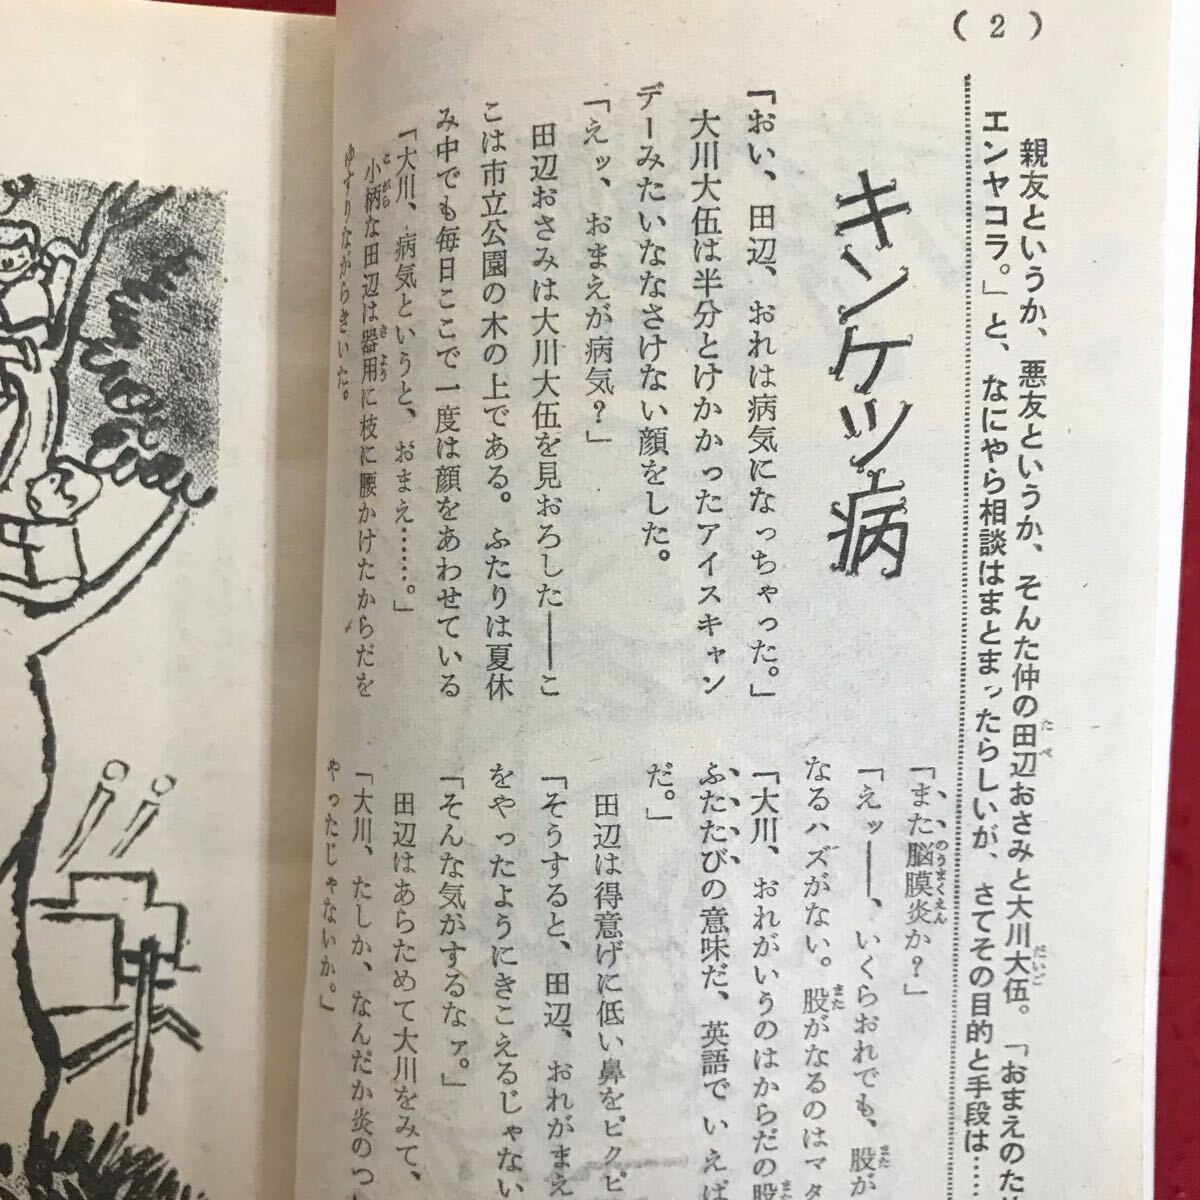 (2)
親友というか、悪友というか、そんた仲の田辺おさみと大川大伍。「おまえのため
エンヤコラ。」と、なにやら相談はまとまったらしいが、さてその目的と手段は……
キンケツ病
「おい、田辺、おれは病気になっちゃった。」
大川大伍は半分とけかかったアイスキャン
デーみたいななさけない顔をした。
「えッ、おまえが病気？」
田辺おさみは大川大伍を見おろした――こ
こは市立公園の木の上である。ふたりは夏休
み中でも毎日ここで一度は顔をあわせている
「大川、病気というと、おまえ……。」
小柄な田辺は器用に枝に腰かけたからだを
ゆすりながらきいた。
「また脳膜炎か？」
「えッ――、いくらおれでも、股が
なるハズがない。股がなるのはマタ
「大川、おれがいうのはからだの股
ふたたびの意味だ、英語でいえば
だ。」
田辺は得意げに低い鼻をピクピ
「そうすると、田辺、おれがまえ
をやったようにきこえるじゃない
「そんな気がするなァ。」
田辺はあらためて大川をみて、
「大川、たしか、なんだか炎のつい
やったじゃないか。」